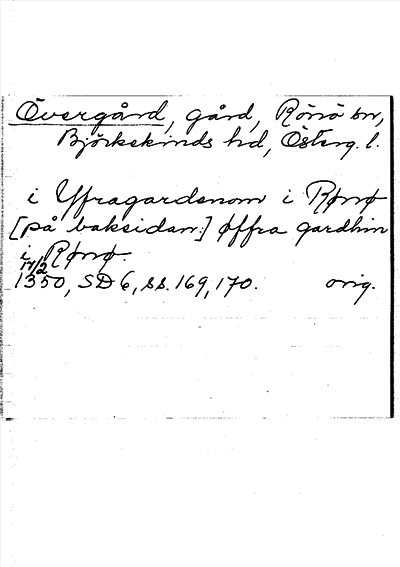 Övergård, gård, Rönö sn,
Björkekinds hd, Österg. l.
i Yfragardenom i Rønø
[på baksidan:] øffra gardhin
i Rønø
17/2
1350, SD 6, ss. 169, 170. orig.